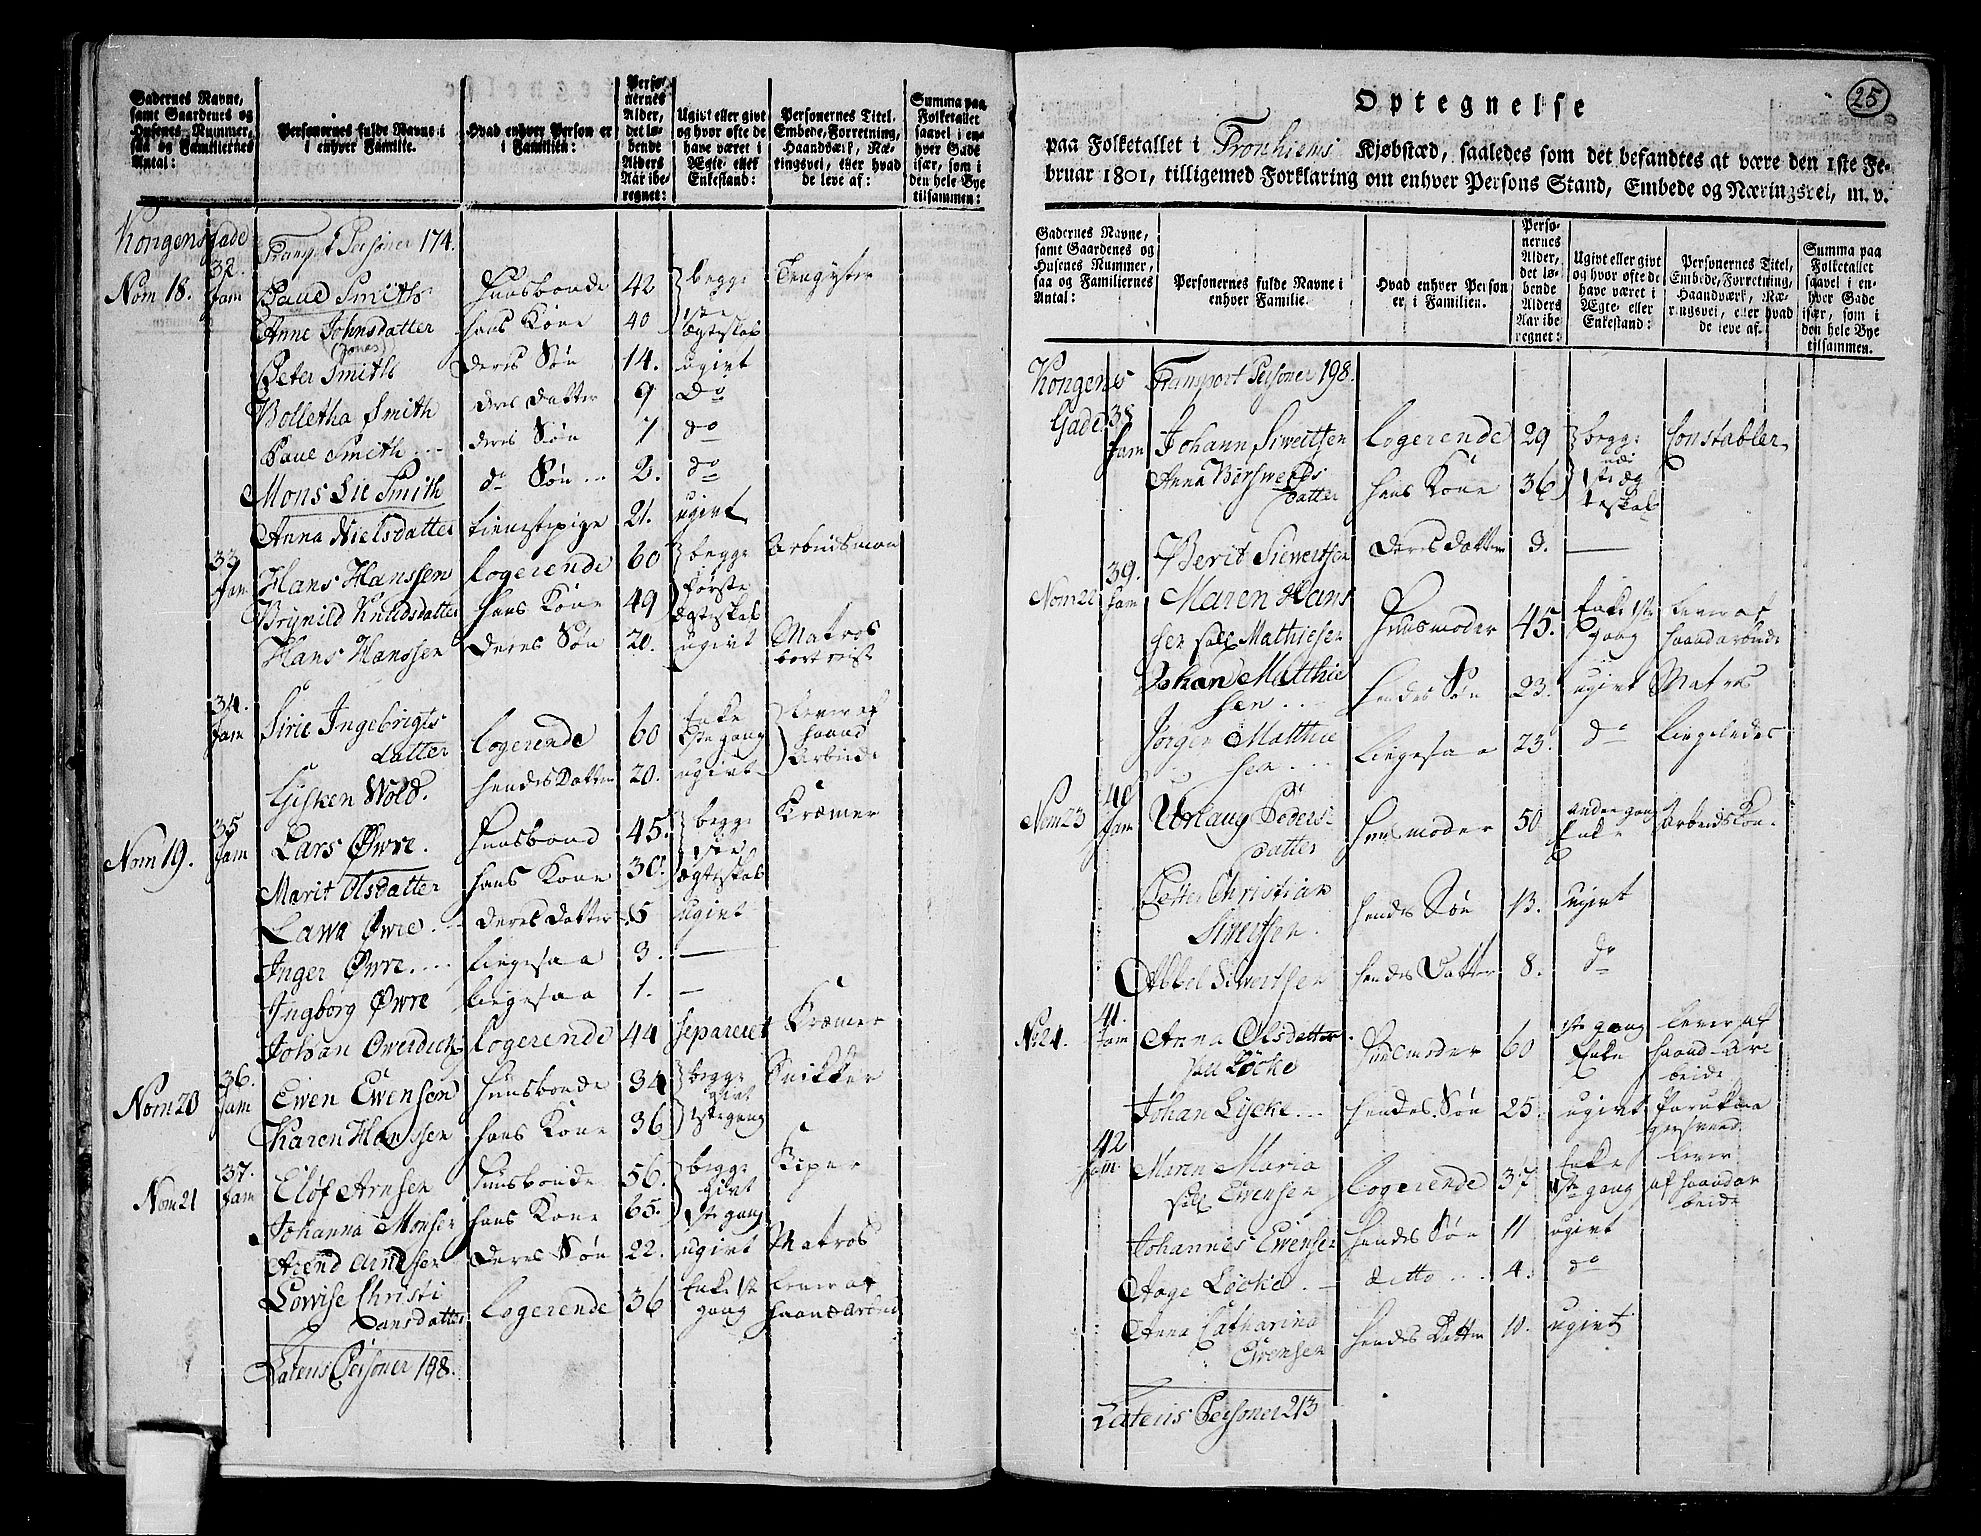 Gadernes Navne, samt Gaardenes og Husenes Nummer, saa og Familiernes Antal:
Personernes fulde Navne i enhver Familie.
Hvad enhver Person er i Familien:
Personernes Alder, det løbende Alders Aar iberegnet:
Ugivt eller givt og hvor ofte de have været i Ægte- eller Enkestand:
Personernes Titel, Embede, Forretning, Haandværk, Næringsvei, eller hvad de leve af:
Summa paa Folketallet saavel i enhver Gade især, som i den hele Bye tilsammen:
Kongens Gade Transport Personer 174.
Nom 18. 32. Fam Paul Smith Huusbonde 42 begge
Anne Johnsdatter hans Kone 40 1ste Ægteskab
Peter Jonas Smith deres Søn 14. ugivt
Bolletha Smith deres datter 9 Do
Paul Smith deres Søn 7 do
Mons Lie Smith do Søn 2. do
Anna Nielsdatter tienestepige 21. ugivt
33 Fam Hans Hanssen logerende 60 begge Arbeidsman
Brynild Knudsdatter hans Kone 49 første Ægteskab
Hans Hanssen deres Søn 20. ugivt Matros bortreist
34. Fam Sirie Ingebrigtsdatter logerende 60 Enke 1ste gang lever af haand Arbeide
Gisken Wold. hendes Datter 20. ugivt
Nom 19. 35 Fam Lars Øwre. Huusbond 45. begge 1ste Kræmer
Marit Olsdatter hans Kone 30. Ægteskab
Lawa Øwre. deres datter 5 ugivt
Inger Øwre.... ligesaa 3. —
Ingborg Øwre ligesaa 1. —
Johan Overdich logerende 44 separeret Kræmer
Nom 20 36. Fam Ewen Ewensen Huusbonde 34 begge givt Snikker
Karen Hanssen hans Kone 36 1ste gang
Nom 21 37. Fam Eløf Arnsen Huusbonde 56. begge givt
Johanna Monsen hans Kone 65. 1ste gang
Arend Arndsen deres Søn 22. ugivt Matros
Lowise Christiansdatter logerende 36 Enke 1st gang lever af haand Arbeid
Lateris Personer 198.
25
Optegnelse
paa Folketallet i Tronhiems Kjøbstæd, saaledes som det befandtes at være den 1ste Februar 1801, tilligemed Forklaring om enhver Persons Stand, Embede og Næringsvei, m. v.
Gadernes Navne, samt Gaardenes og Husenes Nummer, saa og Familiernes Antal:
Personernes fulde Navne i enhver Familie.
Hvad enhver Person er, i Familien.
Personernes Alder, det løbende Alders Aar iberegnet:
Ugivt eller givt og hvor ofte de have været i Ægte- eller Enkestand:
Personernes Titel, Embede, Forretning, Haandværk, Næringsvei, eller hvad de leve af.
Summa paa Folketallet saavel i enhver Gade især, som i den hele Bye tilsammen.
Kongens Gade Transport Personer 198.
38 Fam Johann Siwertsen logerende 29 begge udi Constabler
Anna Børswends datter hans Kone 36 1ste Ægteskab
Berit Siewertsen deres datter 3. —
Nom 22 39. Fam Maren Hansen sal Mathiesen Huusmoder 45. Enke 1ste gang lever af haandarbeide
Johan Matthiesen.. hendes Søn 23. ugivt Matros
Jørgen Matthiesen... ligesaa 23. do ligeledes
Nom 23 40 Fam Urlaug Pedersdatter Huusmoder 50 anden gang Enke Arbeidskone
Petter Christian Siwertsen. hendes Søn 13. ugivt
Abbel Siwertsen hendes Datter 8. do
No 24. 41. Fam Anna Olsdatter sal Löcke Huusmoder 60 1ste gang Enke lever af haand Arbeide
Johan Lycke... hendes Søn 25. ugivt
42 Fam Maren Maria sal Ewensen logerende 37 Enke 1ste gang lever af haandarbeide
Johannes Ewensen hendes Søn 11 ugivt
Aage Löcke.. ditto... 4. do
Anna Catharina Ewensen hendes Datter 10. ugivt
Lateris Personer 213